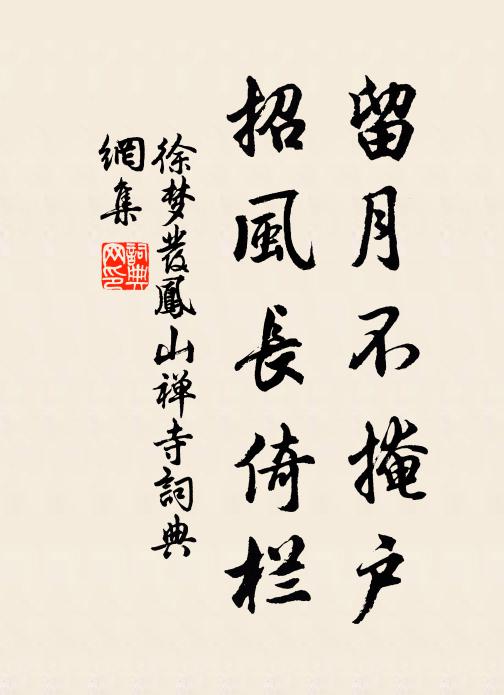 留月不掩户
招風長倚栏
徐梦發鳳山禅寺詞典
網集
詞典
网印